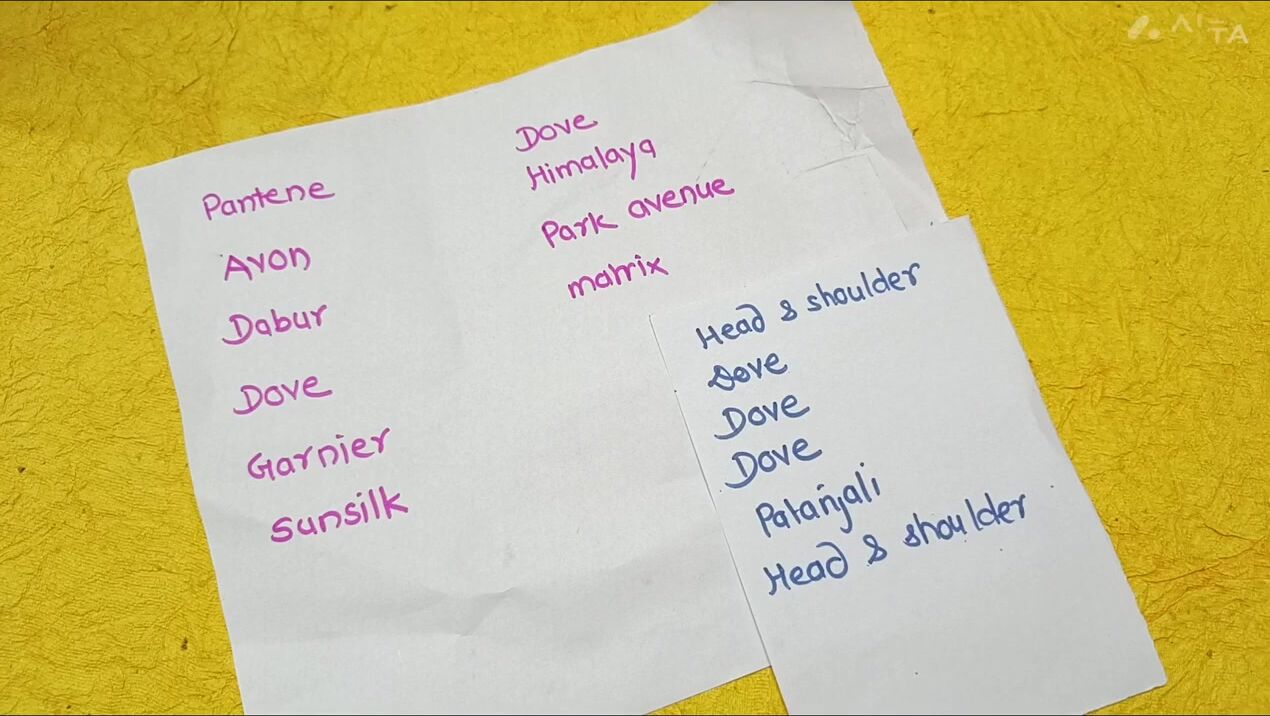 Pantene
Avon
Dabur
Dove
Garnier
Sunsilk
Dove
Himalaya
Park avenue
matrix
Head & shoulder
Dove
Dove
Dove
Patanjali
Head & shoulder